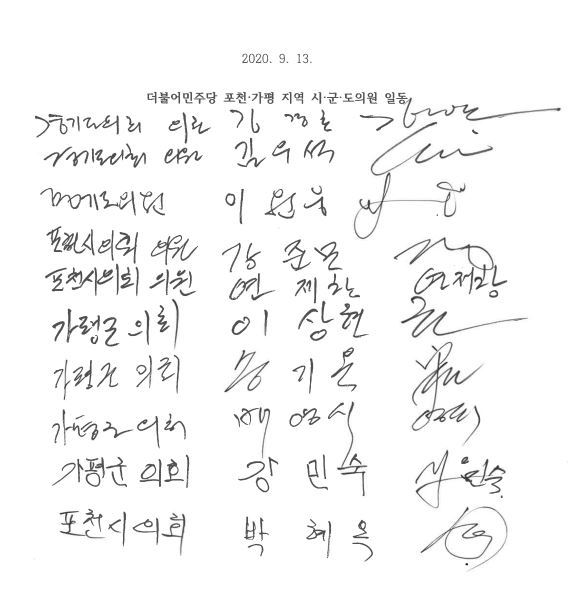 2020. 9. 13.
더불어민주당 포천·가평 지역 시·군·도의원 일동
경기도의회 의원 김경호
경기도의회 의원 김우석
경기도의원 이원웅
포천시의회 의원 강준모
포천시의회 의원 연제창 연제창
가평군 의회 이상현
가평군 의회 송기욱
가평군 의회 배영식
가평군 의회 강민숙
포천시의회 박혜옥